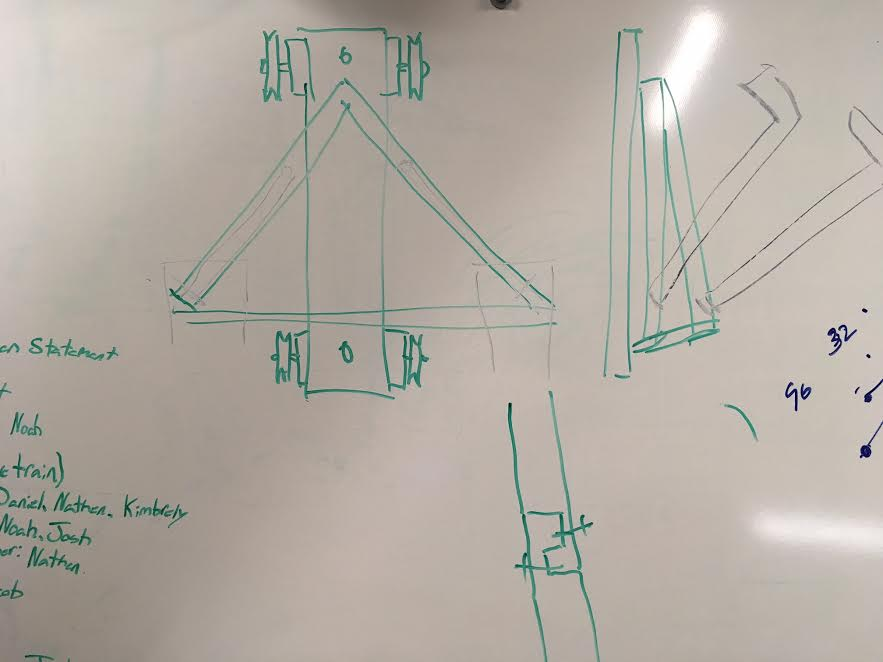 an Statement
t
Noah
e train)
Daniel, Nathan, Kimbrely
Noah, Josh
er: Nathan
ob
32
96